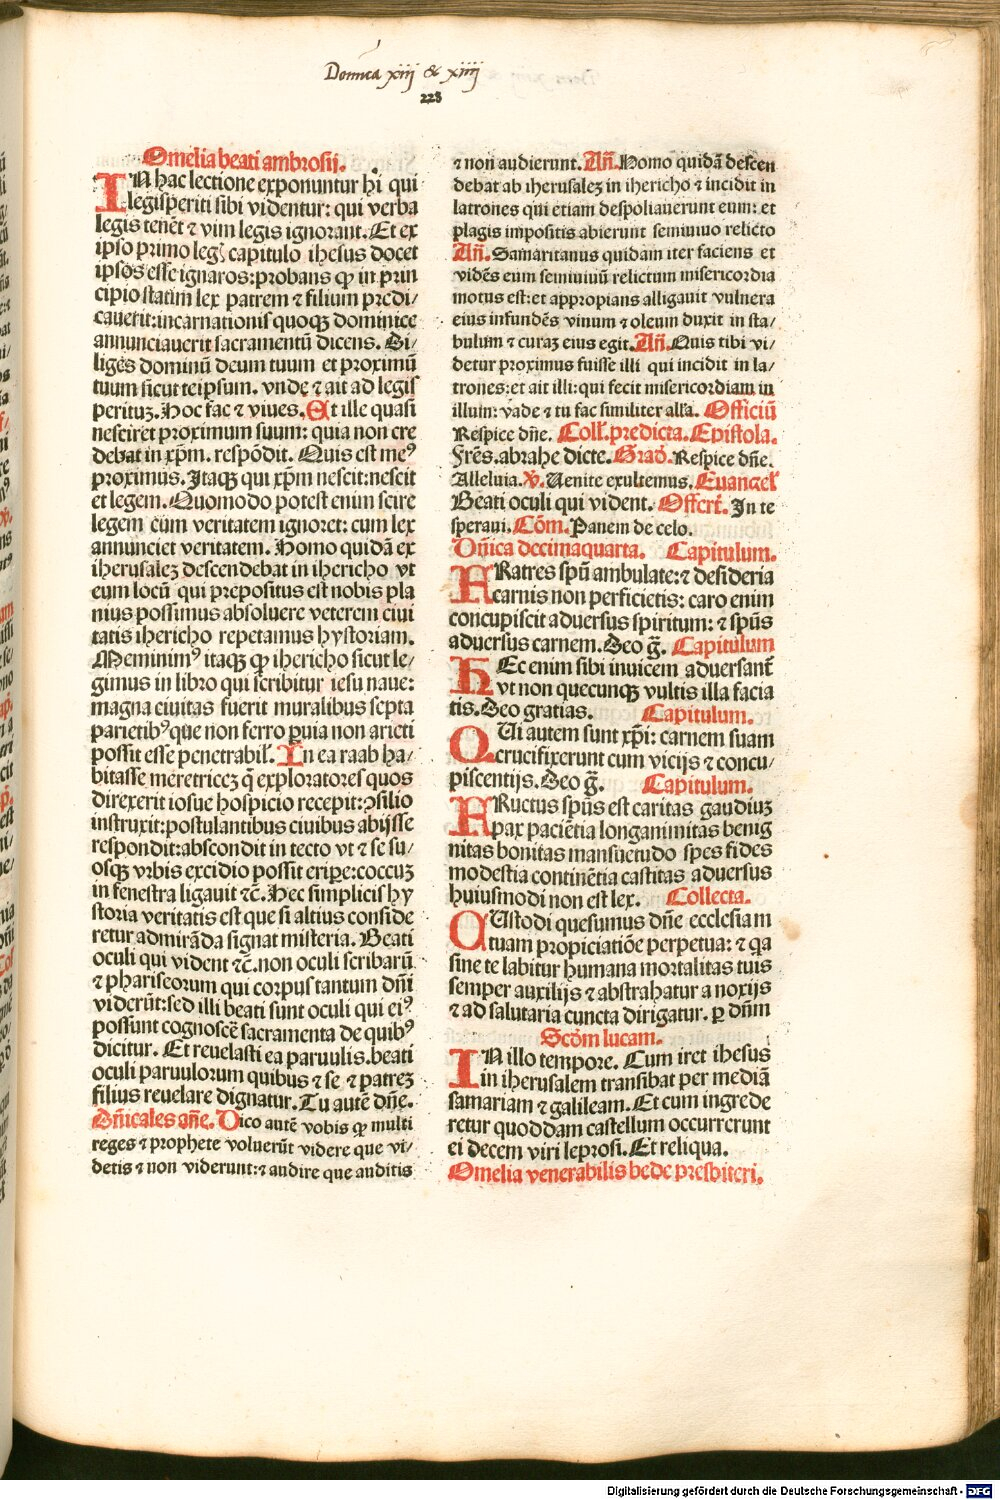 Domīca xiij & xiiij
228
Omelia beati ambrosij.
IN hac lectione exponuntur hi qui
legisperiti sibi videntur: qui verba
legis tenēt ⁊ vim legis ignorant. Et ex
ipso primo leg̃ capitulo ihesus docet
ipsos esse ignaros: probans ꝙ in prin
cipio statim lex patrem ⁊ filium predi/
cauerit: incarnationis quoqꝫ dominice
annunciauerit sacramentū dicens. Di/
liges dominū deum tuum et proximū
tuum sicut teipsum. vnde ⁊ ait ad legis
perituꝫ. Hoc fac ⁊ viues. At ille quasi
nesciret proximum suum: quia non cre
debat in xp̄m. respōdit. Quis est meꝰ
proximus. Itaqꝫ qui xp̄m nescit: nescit
et legem. Quomodo potest enim scire
legem cum veritatem ignoret: cum lex
annunciet veritatem. Homo quidā ex
iherusaleꝫ descendebat in ihericho vt
eum locū qui prepositus est nobis pla
nius possimus absoluere veterem ciui
tatis ihericho repetamus hystoriam.
Meminimꝰ itaqꝫ ꝙ ihericho sicut le/
gimus in libro qui scribitur iesu naue:
magna ciuitas fuerit muralibus septa
parietibꝰ que non ferro peruia non arieti
possit esse penetrabil̕. In ea raab ha/
bitasse meretriceꝫ q̄ exploratores quos
direxerit iosue hospicio recepit: ↄsilio
instruxit: postulantibus ciuibus abijsse
respondit: abscondit in tecto vt ⁊ se su/
osqꝫ vrbis excidio possit eripe: coccuꝫ
in fenestra ligauit ⁊c̄. Hec simplicis hy
storia veritatis est que si altius conside
retur admirāda signat misteria. Beati
oculi qui vident ⁊c̄. non oculi scribarū
⁊ phariseorum qui corpus tantum dn̄i
viderūt: sed illi beati sunt oculi qui eiꝰ
possunt cognoscē sacramenta de quibꝰ
dicitur. Et reuelasti ea paruulis. beati
oculi paruulorum quibus ⁊ se ⁊ patreꝫ
filius reuelare dignatur. Tu autē dn̄e.
Dn̄icales an̄e. Dico autē vobis ꝙ multi
reges ⁊ prophete voluerūt videre que vi/
detis ⁊ non viderunt: ⁊ audire que auditis
⁊ non audierunt. An̄. Homo quidā descen
debat ab iherusaleꝫ in ihericho ⁊ incidit in
latrones qui etiam despoliauerunt eum: et
plagis impositis abierunt seminiuo relicto
An̄. Samaritanus quidam iter faciens et
vidēs eum seminiuū relictum misericordia
motus est: et appropians alligauit vulnera
eius infundēs vinum ⁊ oleum duxit in sta/
bulum ⁊ curaꝫ eius egit. An̄. Quis tibi vi/
detur proximus fuisse illi qui incidit in la/
trones: et ait illi: qui fecit misericordiam in
illum: vade ⁊ tu fac similiter all̕a. Officiū
Respice dn̄e. Coll̕. predicta. Epistola.
Frēs. abrahe dicte. Grad̕. Respice dn̄e.
Alleluia. ℣. Uenite exultemus. Euangel̕
Beati oculi qui vident. Offert̕. In te
speraui. Cōm. Panem de celo.
Dn̄ica decimaquarta. Capitulum.
FRatres spū ambulate: ⁊ desideria
carnis non perficietis: caro enim
concupiscit aduersus spiritum: ⁊ spūs
aduersus carnem. Deo g̃. Capitulum
HEc enim sibi inuicem aduersant̄
vt non quecunqꝫ vultis illa facia
tis. Deo gratias. Capitulum.
QUi autem sunt xp̄i: carnem suam
crucifixerunt cum vicijs ⁊ concu/
piscentijs. Deo g̃. Capitulum.
FRuctus spūs est caritas gaudiuꝫ
pax paciētia longanimitas benig
nitas bonitas mansuetudo spes fides
modestia continētia castitas aduersus
huiusmodi non est lex. Collecta.
CUstodi quesumus dn̄e ecclesiam
tuam propiciatiōe perpetua: ⁊ qa
sine te labitur humana mortalitas tuis
semper auxilijs ⁊ abstrahatur a noxijs
⁊ ad salutaria cuncta dirigatur. ꝑ dn̄m
Scd̕m lucam.
IN illo tempore. Cum iret ihesus
in iherusalem transibat per mediā
samariam ⁊ galileam. Et cum ingrede
retur quoddam castellum occurrerunt
ei decem viri leprosi. Et reliqua.
Omelia venerabilis bede presbiteri.
Digitalisierung gefördert durch die Deutsche Forschungsgemeinschaft - DFG